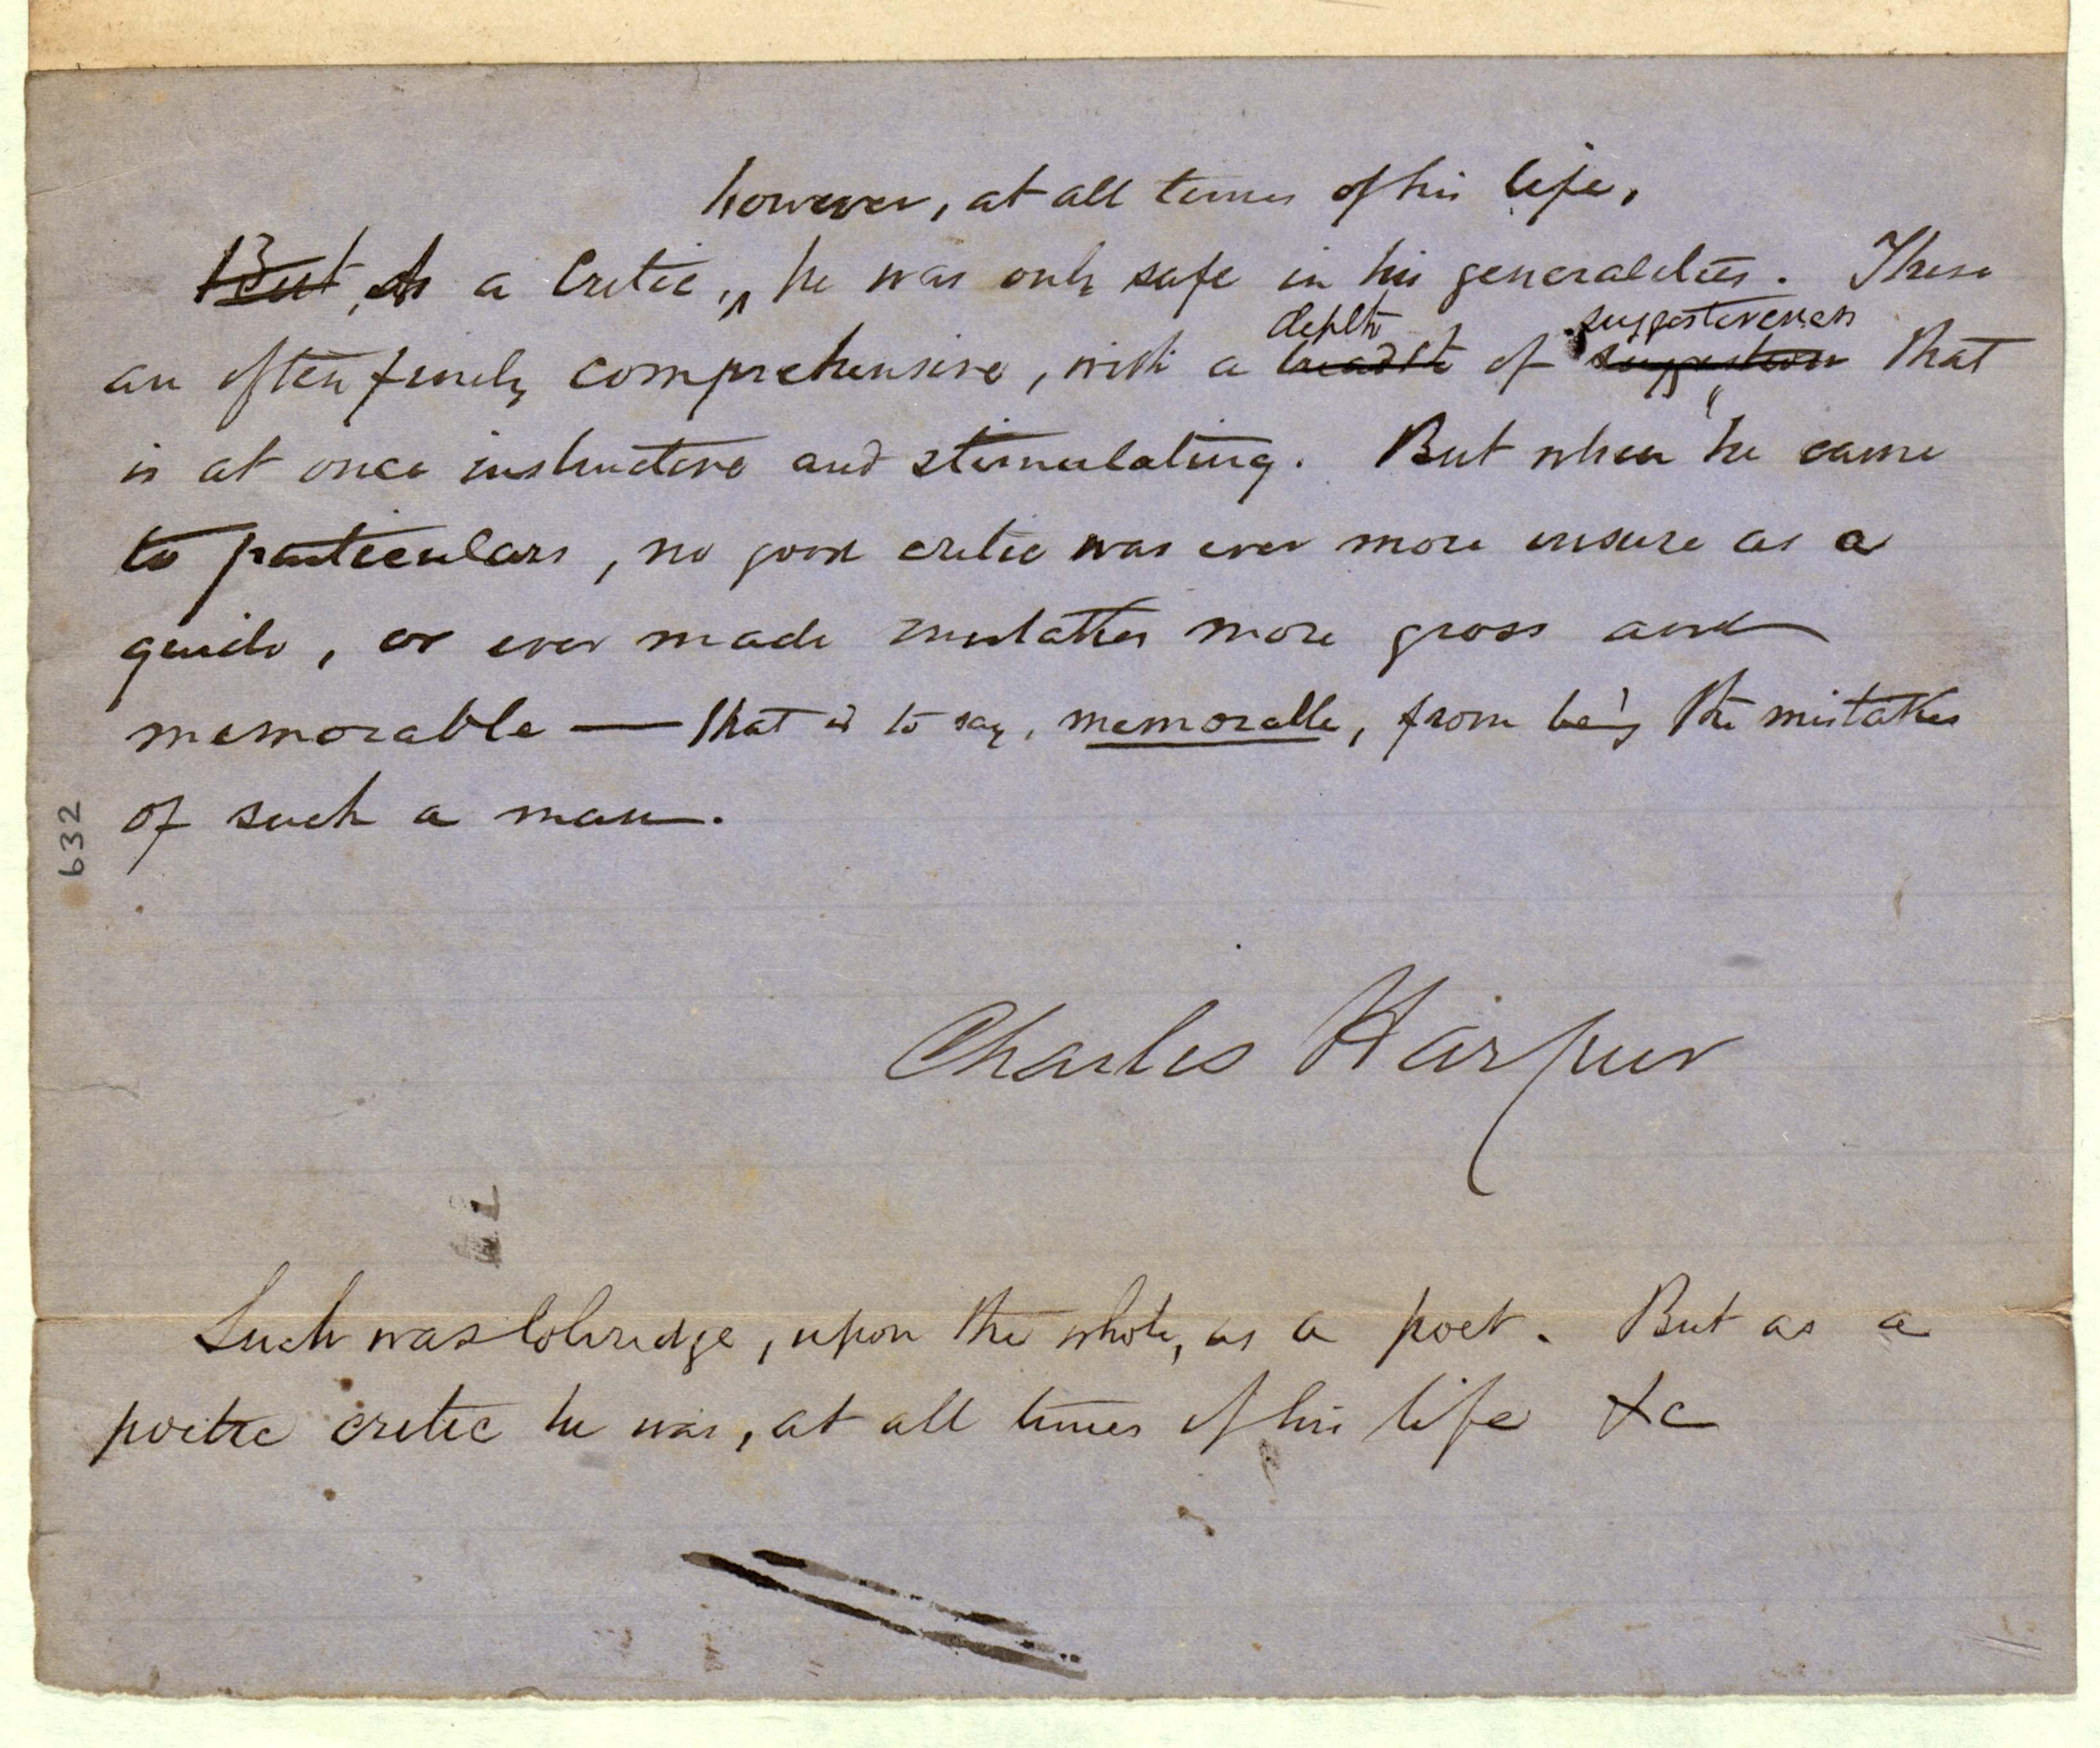 however, at all times of his life,
But, As a Critic,, he was only safe in his generalities. These
depth suggestiveness
are often finely comprehensive, with a breadth of suggestion that
is at once instructive and stimulating. But when he came
to particulars, no good critic was ever more unsure as a
guide, or ever made mistakes more gross and
memorable — that is to say, memorable, from being the mistakes
of such a man.
632
Charles Harpur
Such was Coleridge, upon the whole, as a poet. But as a
poetic critic he was, at all times of his life &c